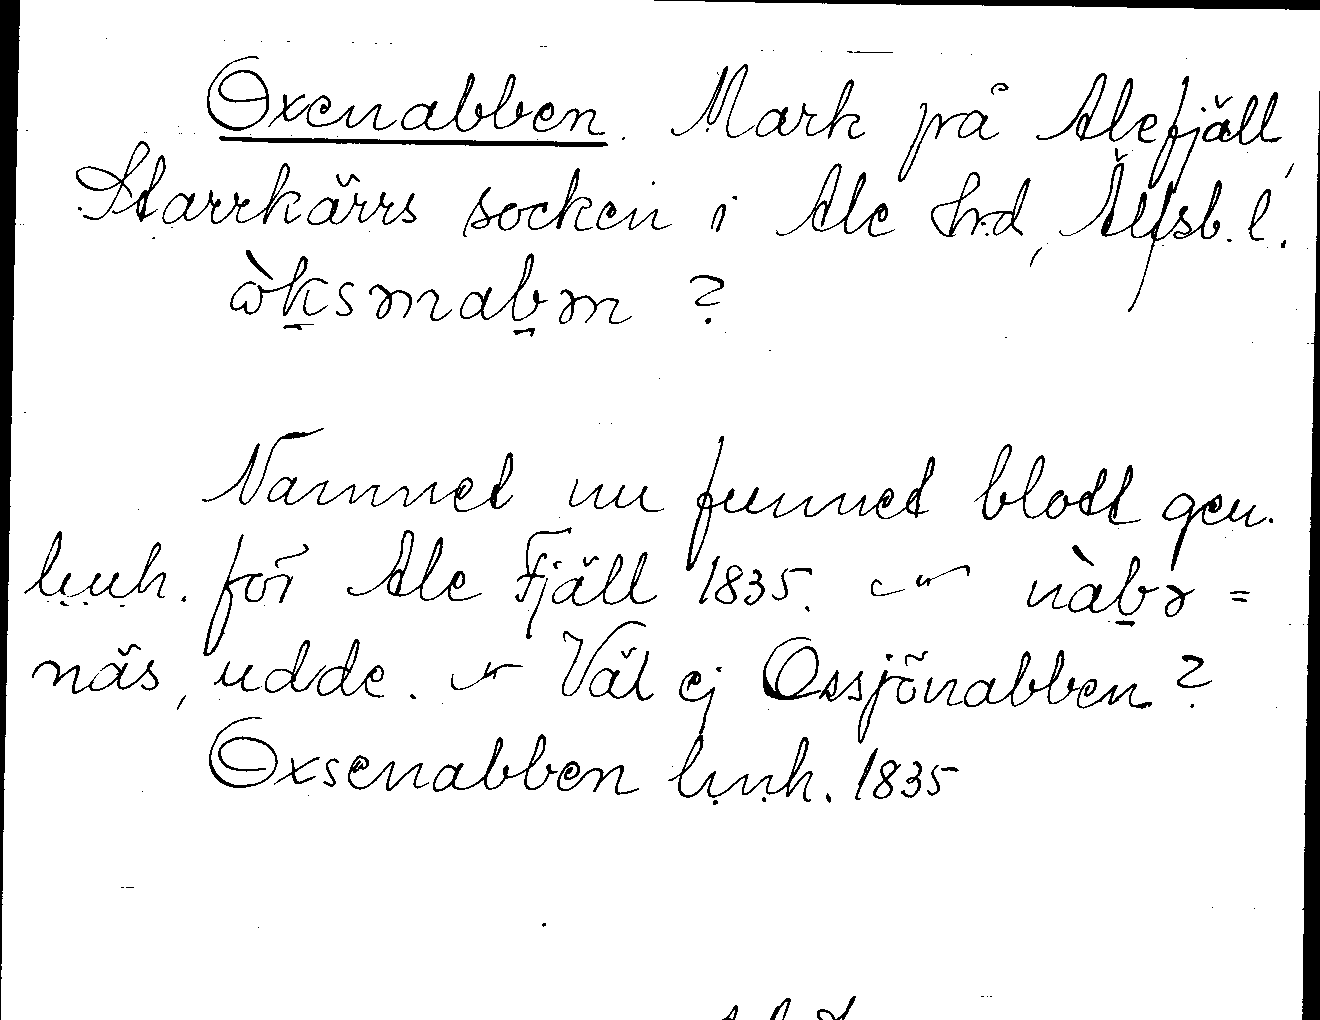 Oxenabben. Mark på Alefjäll,
Starrkärrs socken i Ale hrd, Älfsb. l.
ɷ̀k̠sənab̠ən ?
Namnet nu funnet blott gen.
lṃṇh. för Ale Fjäll 1835. — nàb̠ə =
näs, udde. — Väl ej Ossjönabben?
Oxsenabben lṃṇh. 1835